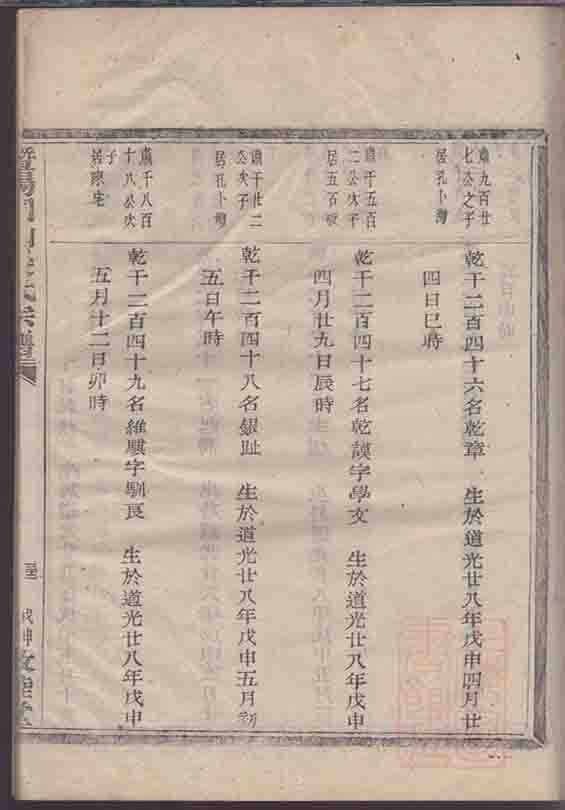 肅九百廿
七公之子
居孔卜灣
乾千二百四十六名乾章 生於道光廿八年戊申四月廿
四日巳時
肅千五百
二公次子
居五百
乾千二百四十七名乾謨字學文 生於道光廿八年戊申
四月廿九日辰時
肅千廿二
公次子
居孔卜灣
乾千二百四十八名銀趾 生於道光廿八年戊申五月初
五日午時
肅千八百
十八公次
子
居陳宅
乾千二百四十九名維騏字馴良 生於道光廿八年戊申
五月十二日卯時
宗譜
戊申